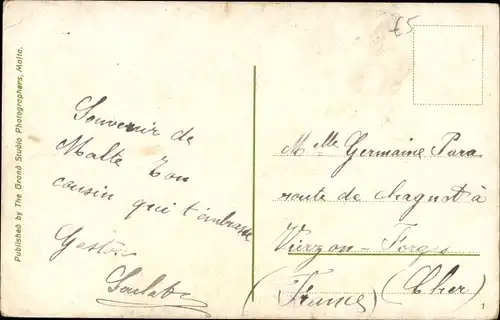 Published by The Grand Studio Photographers, Malta.
£5
Souvenir de
Malte Ton
cousin qui t'embrasse
Gaston
Mlle Germaine Para
route de
Vierzon-Forges
(France) (Cher)
1